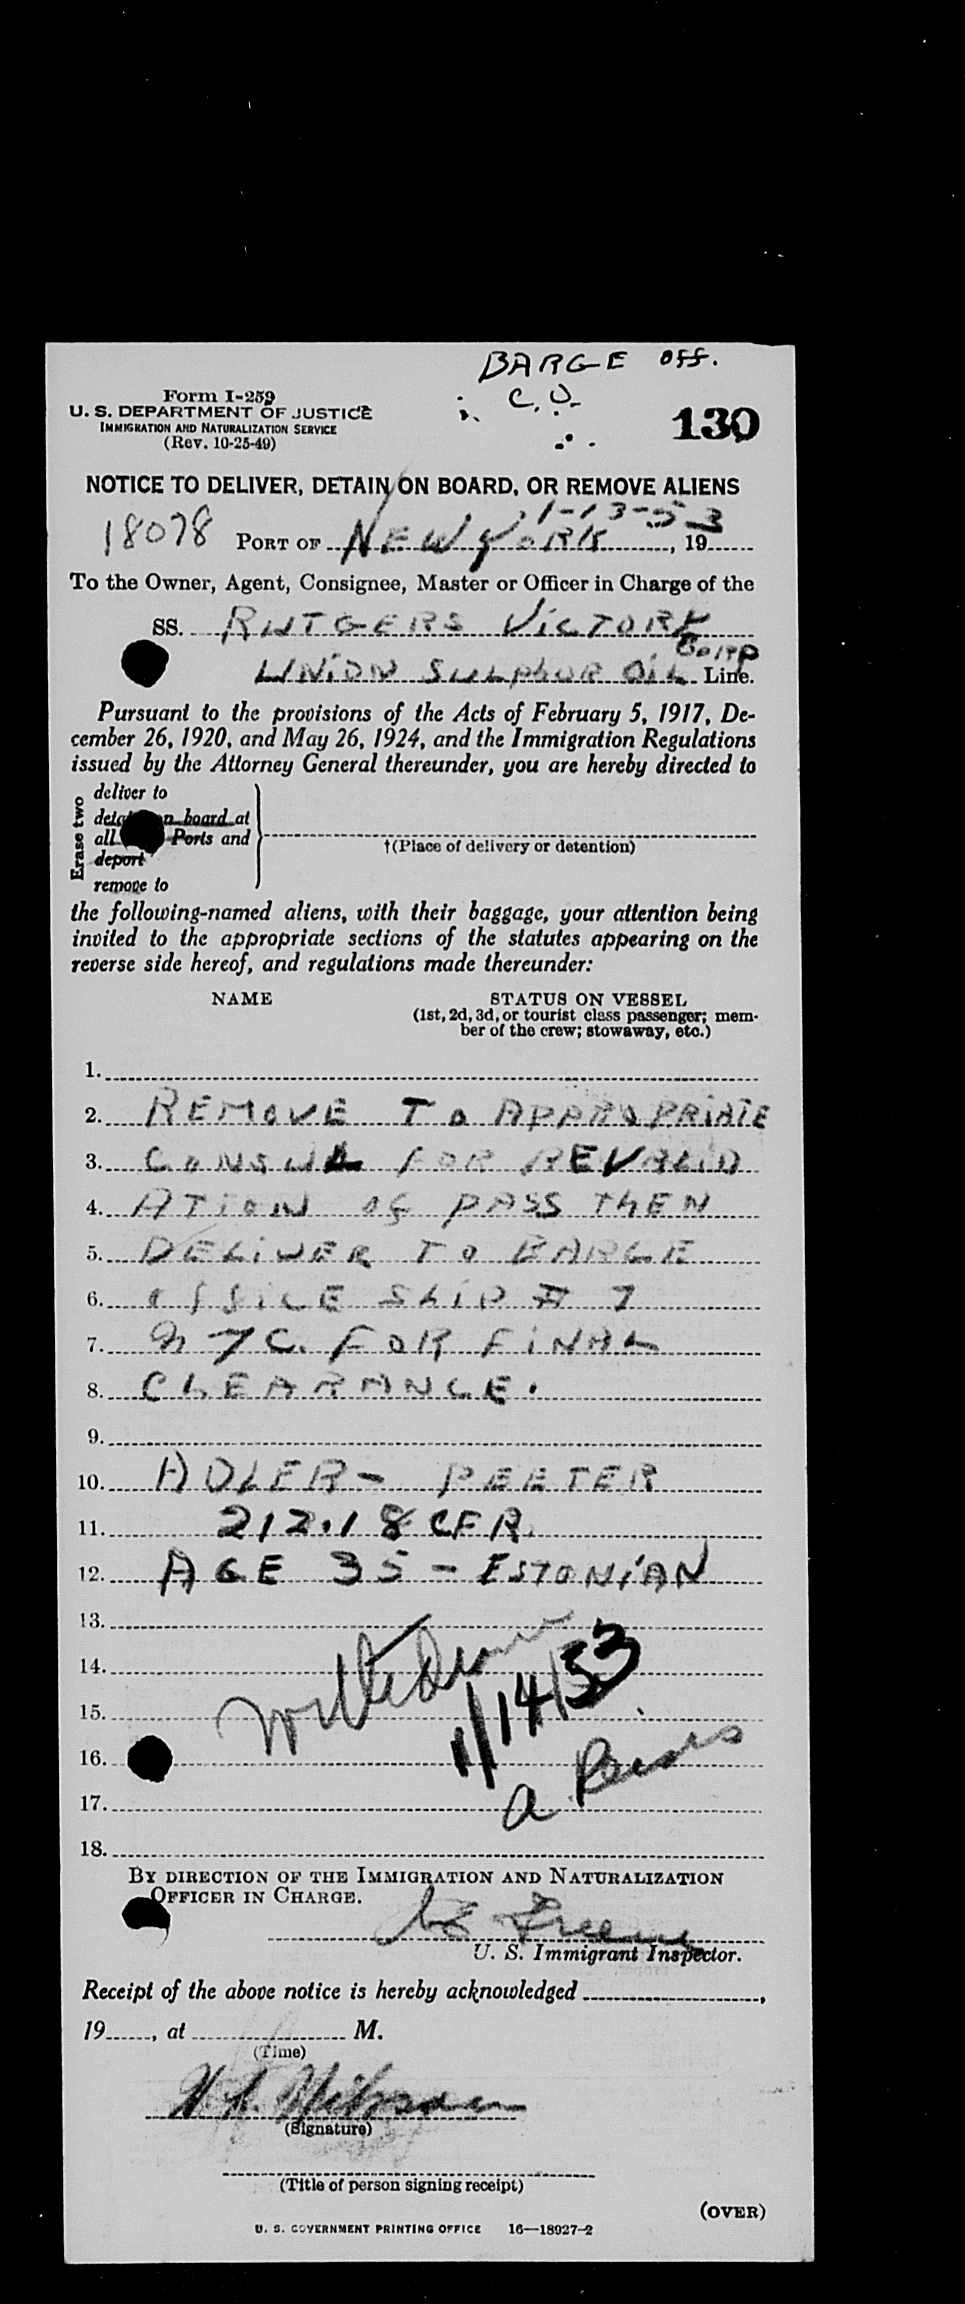 BARGE Off.
C.O.
Form I-259
U. S. DEPARTMENT OF JUSTICE
IMMIGRATION AND NATURALIZATION SERVICE
(Rev. 10-25-49)
130
NOTICE TO DELIVER, DETAIN ON BOARD, OR REMOVE ALIENS
1-13-53
18078 PORT OF NEW YORK, 19
To the Owner, Agent, Consignee, Master or Officer in Charge of the
SS. RUTGERS VICTORY
UNION SULPHUR OIL CORP Line.
Pursuant to the provisions of the Acts of February 5, 1917, De-
cember 26, 1920, and May 26, 1924, and the Immigration Regulations
issued by the Attorney General thereunder, you are hereby directed to
Erase two
deliver to
on board at
all Ports and
deport
remove to
†(Place of delivery or detention)
the following-named aliens, with their baggage, your attention being
invited to the appropriate sections of the statutes appearing on the
reverse side hereof, and regulations made thereunder:
NAME STATUS ON VESSEL
(1st, 2d, 3d, or tourist class passenger; mem-
ber of the crew; stowaway, etc.)
1.
2. REMOVE TO APPROPRIATE
3. CONSUL FOR REVALID
4. ATION OF PASS THEN
5. DELIVER TO BARGE
6. OFFICE SLIP # 7
7. N Y C. FOR FINAL
8. CLEARANCE.
9.
10. ADLER - PEETER
11. 212.18 CFR.
12. AGE 35 - ESTONIAN
13.
14.
15. 1/14/53
16.
17. a
18.
BY DIRECTION OF THE IMMIGRATION AND NATURALIZATION
OFFICER IN CHARGE.
Greene
U. S. Immigrant Inspector.
Receipt of the above notice is hereby acknowledged ,
19 , at M.
(Time)
(Signature)
(Title of person signing receipt)
(OVER)
U. S. GOVERNMENT PRINTING OFFICE 16—18927-2